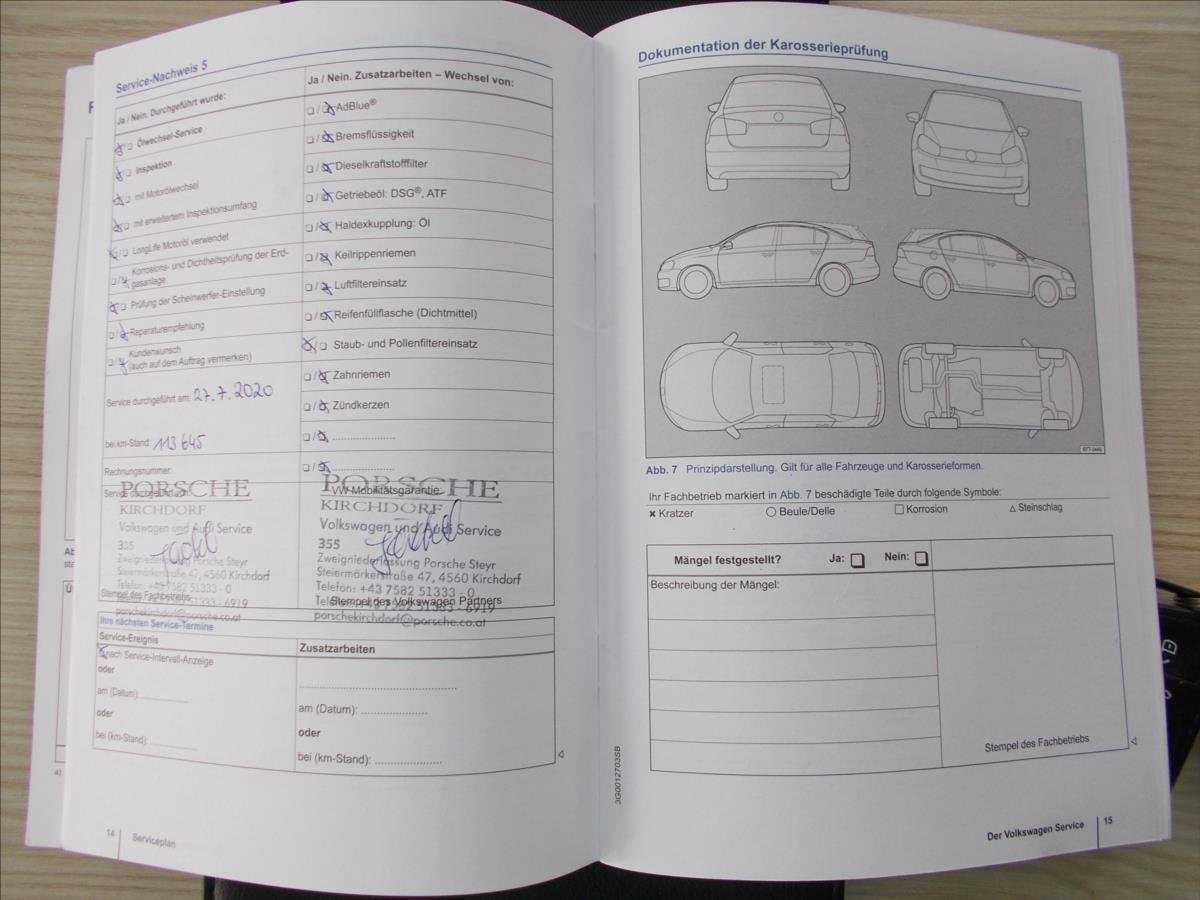 Service-Nachweis 5
Ja / Nein. Durchgeführt wurde:
Ölwechsel-Service
Inspektion
mit Motorölwechsel
mit erweitertem Inspektionsumfang
LongLife Motoröl verwendet
Korrosions- und Dichtheitsprüfung der Erd-
gasanlage
Prüfung der Scheinwerfer-Einstellung
Reparaturempfehlung
Kundenwunsch
(auch auf dem Auftrag vermerken)
Service durchgeführt am: 27.7.2020
bei km-Stand: 113 645
Rechnungsnummer:
Service durchgeführt
PORSCHE
KIRCHDORF
Volkswagen und Audi Service
355
Zweigniederlassung Porsche Steyr
Steiermärkerstraße 47, 4560 Kirchdorf
Telefon: +43 7582 51333 - 0
51333 - 6919
Stempel des Fachbetriebs
porschekirchdorf@porsche.co.at
Ja / Nein. Zusatzarbeiten – Wechsel von:
AdBlue®
Bremsflüssigkeit
Dieselkraftstofffilter
Getriebeöl: DSG®, ATF
Haldexkupplung: Öl
Keilrippenriemen
Luftfiltereinsatz
Reifenfüllflasche (Dichtmittel)
Staub- und Pollenfiltereinsatz
Zahnriemen
Zündkerzen
VW Mobilitätsgarantie:
PORSCHE
KIRCHDORF
Volkswagen und Audi Service
355
Zweigniederlassung Porsche Steyr
Steiermärkerstraße 47, 4560 Kirchdorf
Telefon: +43 7582 51333 - 0
Stempel des Volkswagen Partners
porschekirchdorf@porsche.co.at
Ihre nächsten Service-Termine
Service-Ereignis
nach Service-Intervall-Anzeige
oder
am (Datum):
oder
bei (km-Stand):
Zusatzarbeiten
am (Datum):
oder
bei (km-Stand):
14 Serviceplan
Dokumentation der Karosserieprüfung
Abb. 7 Prinzipdarstellung. Gilt für alle Fahrzeuge und Karosserieformen.
Ihr Fachbetrieb markiert in Abb. 7 beschädigte Teile durch folgende Symbole:
× Kratzer ○ Beule/Delle □ Korrosion △ Steinschlag
Mängel festgestellt? Ja: Nein:
Beschreibung der Mängel:
Stempel des Fachbetriebs
3G0012703SB
Der Volkswagen Service 15